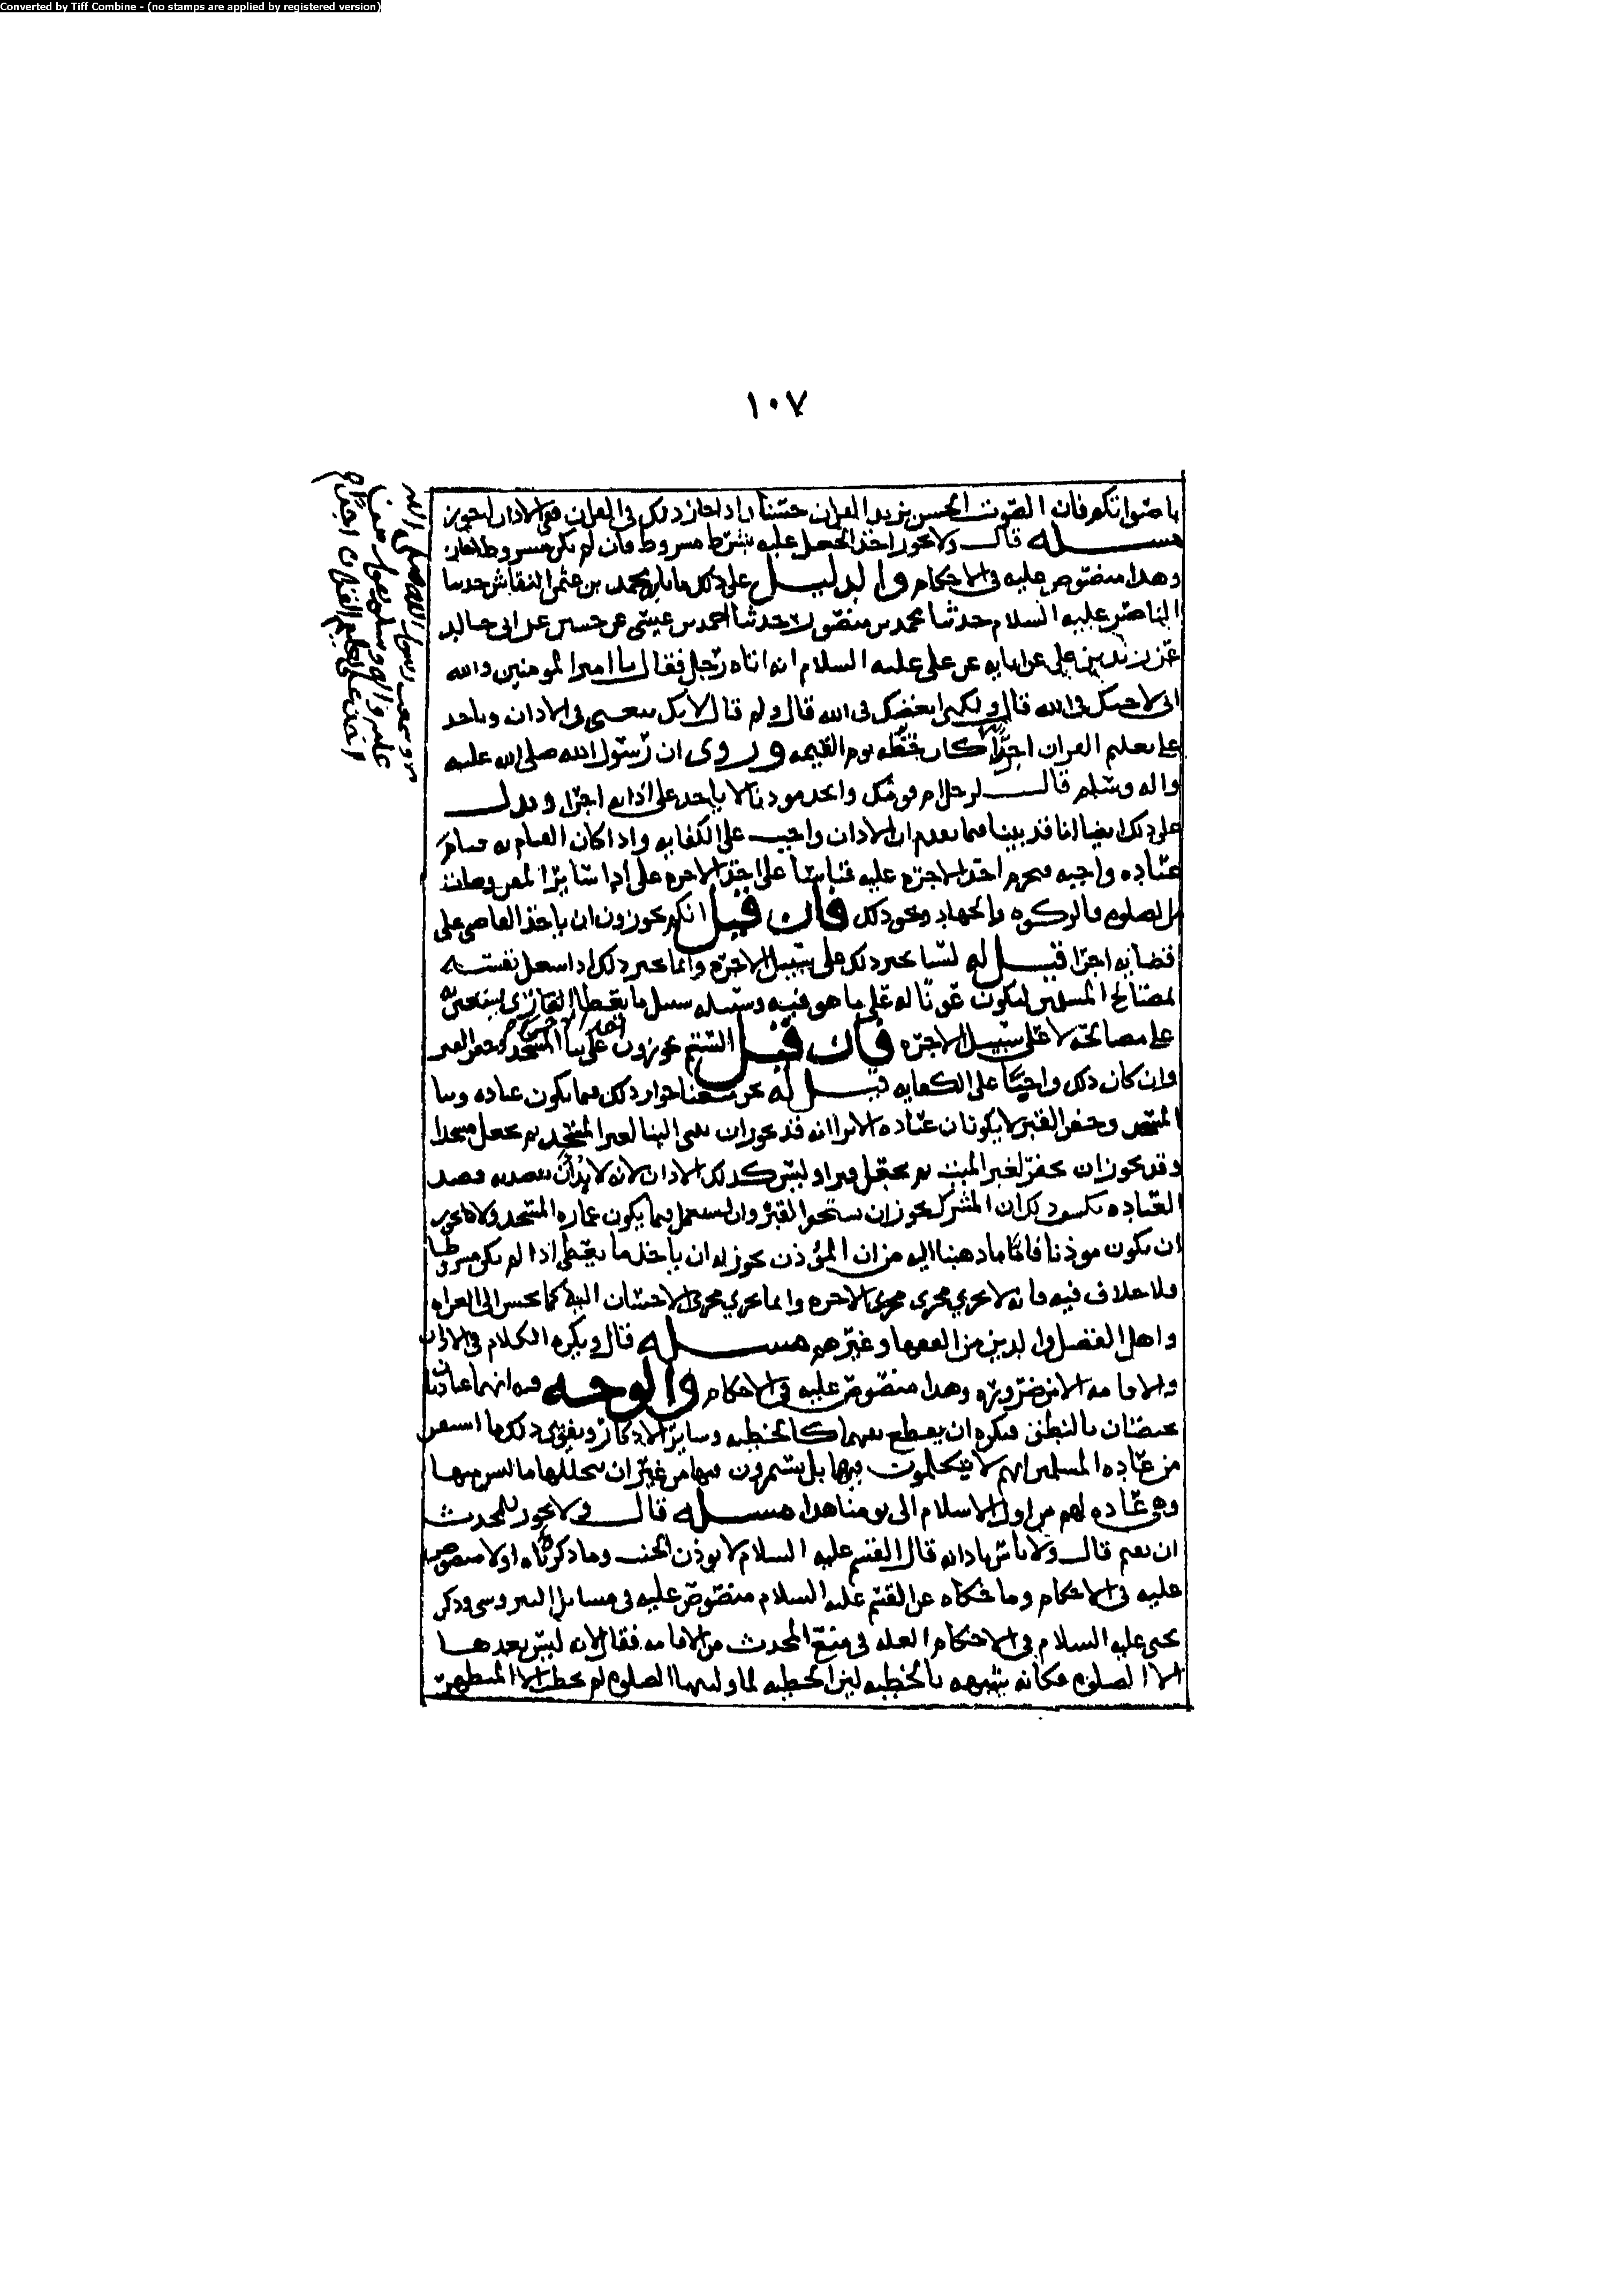 Converted by Tiff Combine - (no stamps are applied by registered version)
١٠٧
باصواتكم فان الصوت الحسن يزيد القران حسنا واذا جاز ذلك في القران فهو في الاذان اجوز
مسـله قال ولا يجوز اخذ الجعل عليه بشرط مشروط فان لم يكن مشروطا جاز
وهذا منصوص عليه في الاحكام والدليل على ذلك محمد بن عثمن النقاش حدثنا
الناصر عليه السلام حدثنا محمد بن منصور حدثنا احمد بن عيسى عن حسين عن ابي خالد
عن زيد بن علي عن ابايه عن علي عليه السلام انه اتاه رجل فقال يا امير المومنين والله
اني لاحبك في الله قال ولكني ابغضك في الله قال ولم قال لانك تتغنى في الاذان وتاخذ
على تعليم القران اجرا كان حظه يوم القيمه وروى ان رسول الله صلى الله عليه
واله وسلم قال لرجل ام قومك واتخذ موذنا لا ياخذ على اذانه اجرا ويدل
على ذلك ايضا انا قد بينا فيما تقدم ان الاذان واجب على الكفايه واذا كان القيام به
عباده واجبه فيحرم اخذ الاجره عليه قياسا على اخذ الاجره على اداء ساير المفروضات
من الصلوه والزكوه والجهاد ونحو ذلك فان قيل انكم تجوزون ان ياخذ القاضي على
قضايه اجرا قيل له لسنا نجيز ذلك على سبيل الاجره وانما نجيز ذلك اذا شغل نفسه
لمصالح المسلمين ليكون عونا له على ما هو فيه وسبيله سبيل ما يعطا الغازي ليستعين به
على مصالحه لا على سبيل الاجره فان قيل الستم تجوزون على بنا المسجد وحفر القبر
وان كان ذلك واجبا على الكفايه قيل له نحن منعنا جواز ذلك فيما يكون عباده وبنا
المسجد وحفر القبر لا يكونان عباده الا ترا انه قد يجوز ان يبنى البنا لغير المسجد ثم يجعل مسجدا
وقد يجوز ان يحفر لغير الميت ثم يجعل قبرا وليس كذلك الاذان لانه لا بد ان يقصد به قصد
العباده يكشف ذلك ان المشرك يجوز ان يستحفر القبر وان يستعمل فيما يكون عماره المسجد ولا يجوز
ان يكون موذنا فاما ما ذهبنا اليه من ان المؤذن يجوز له ان ياخذ ما يعطى اذا لم يكن مشروطا
فلا خلاف فيه فانه لا يجري مجرى الاجره وانما يجري مجرى الاحسان اليه كما يحسن الى القراء
واهل الفضل والدين من الفقها وغيرهم مسـله قال ويكره الكلام في الاذان
والاقامه الا من ضروره وهذا منصوص عليه في الاحكام والوجه فيه انهما عبادتان
مختصتان بالنطق فيكره ان يقطع بينهما كالخطبه وساير الاذكار ويقوي ذلك ما استمر
من عاده المسلمين انهم لا يتكلمون فيها بل يستمرون فيها من غير ان يتخللها ما ليس منها
وهي عاده لهم من اول الاسلام الى يومنا هذا مسـله قال ولا يجوز للمحدث
ان يقيم قال ولا باس باذانه قال القسم عليه السلام لا يوذن الجنب وما ذكرناه اولا منصوص
عليه في الاحكام وما حكاه عن القسم عليه السلام منصوص عليه في مسايل النيروسي وذكر
يحيى عليه السلام في الاحكام العله في منع المحدث من الاقامه فقال لانه ليس بعدها
الا الصلوه فكانه شبهه بالخطبه لان الخطبه لما وليها الصلوه لم يخطب الا المتطهر
وسمعت رسول الله صلى الله
عليه واله وسلم يقول من
اخذ على تعليم القران اجرا